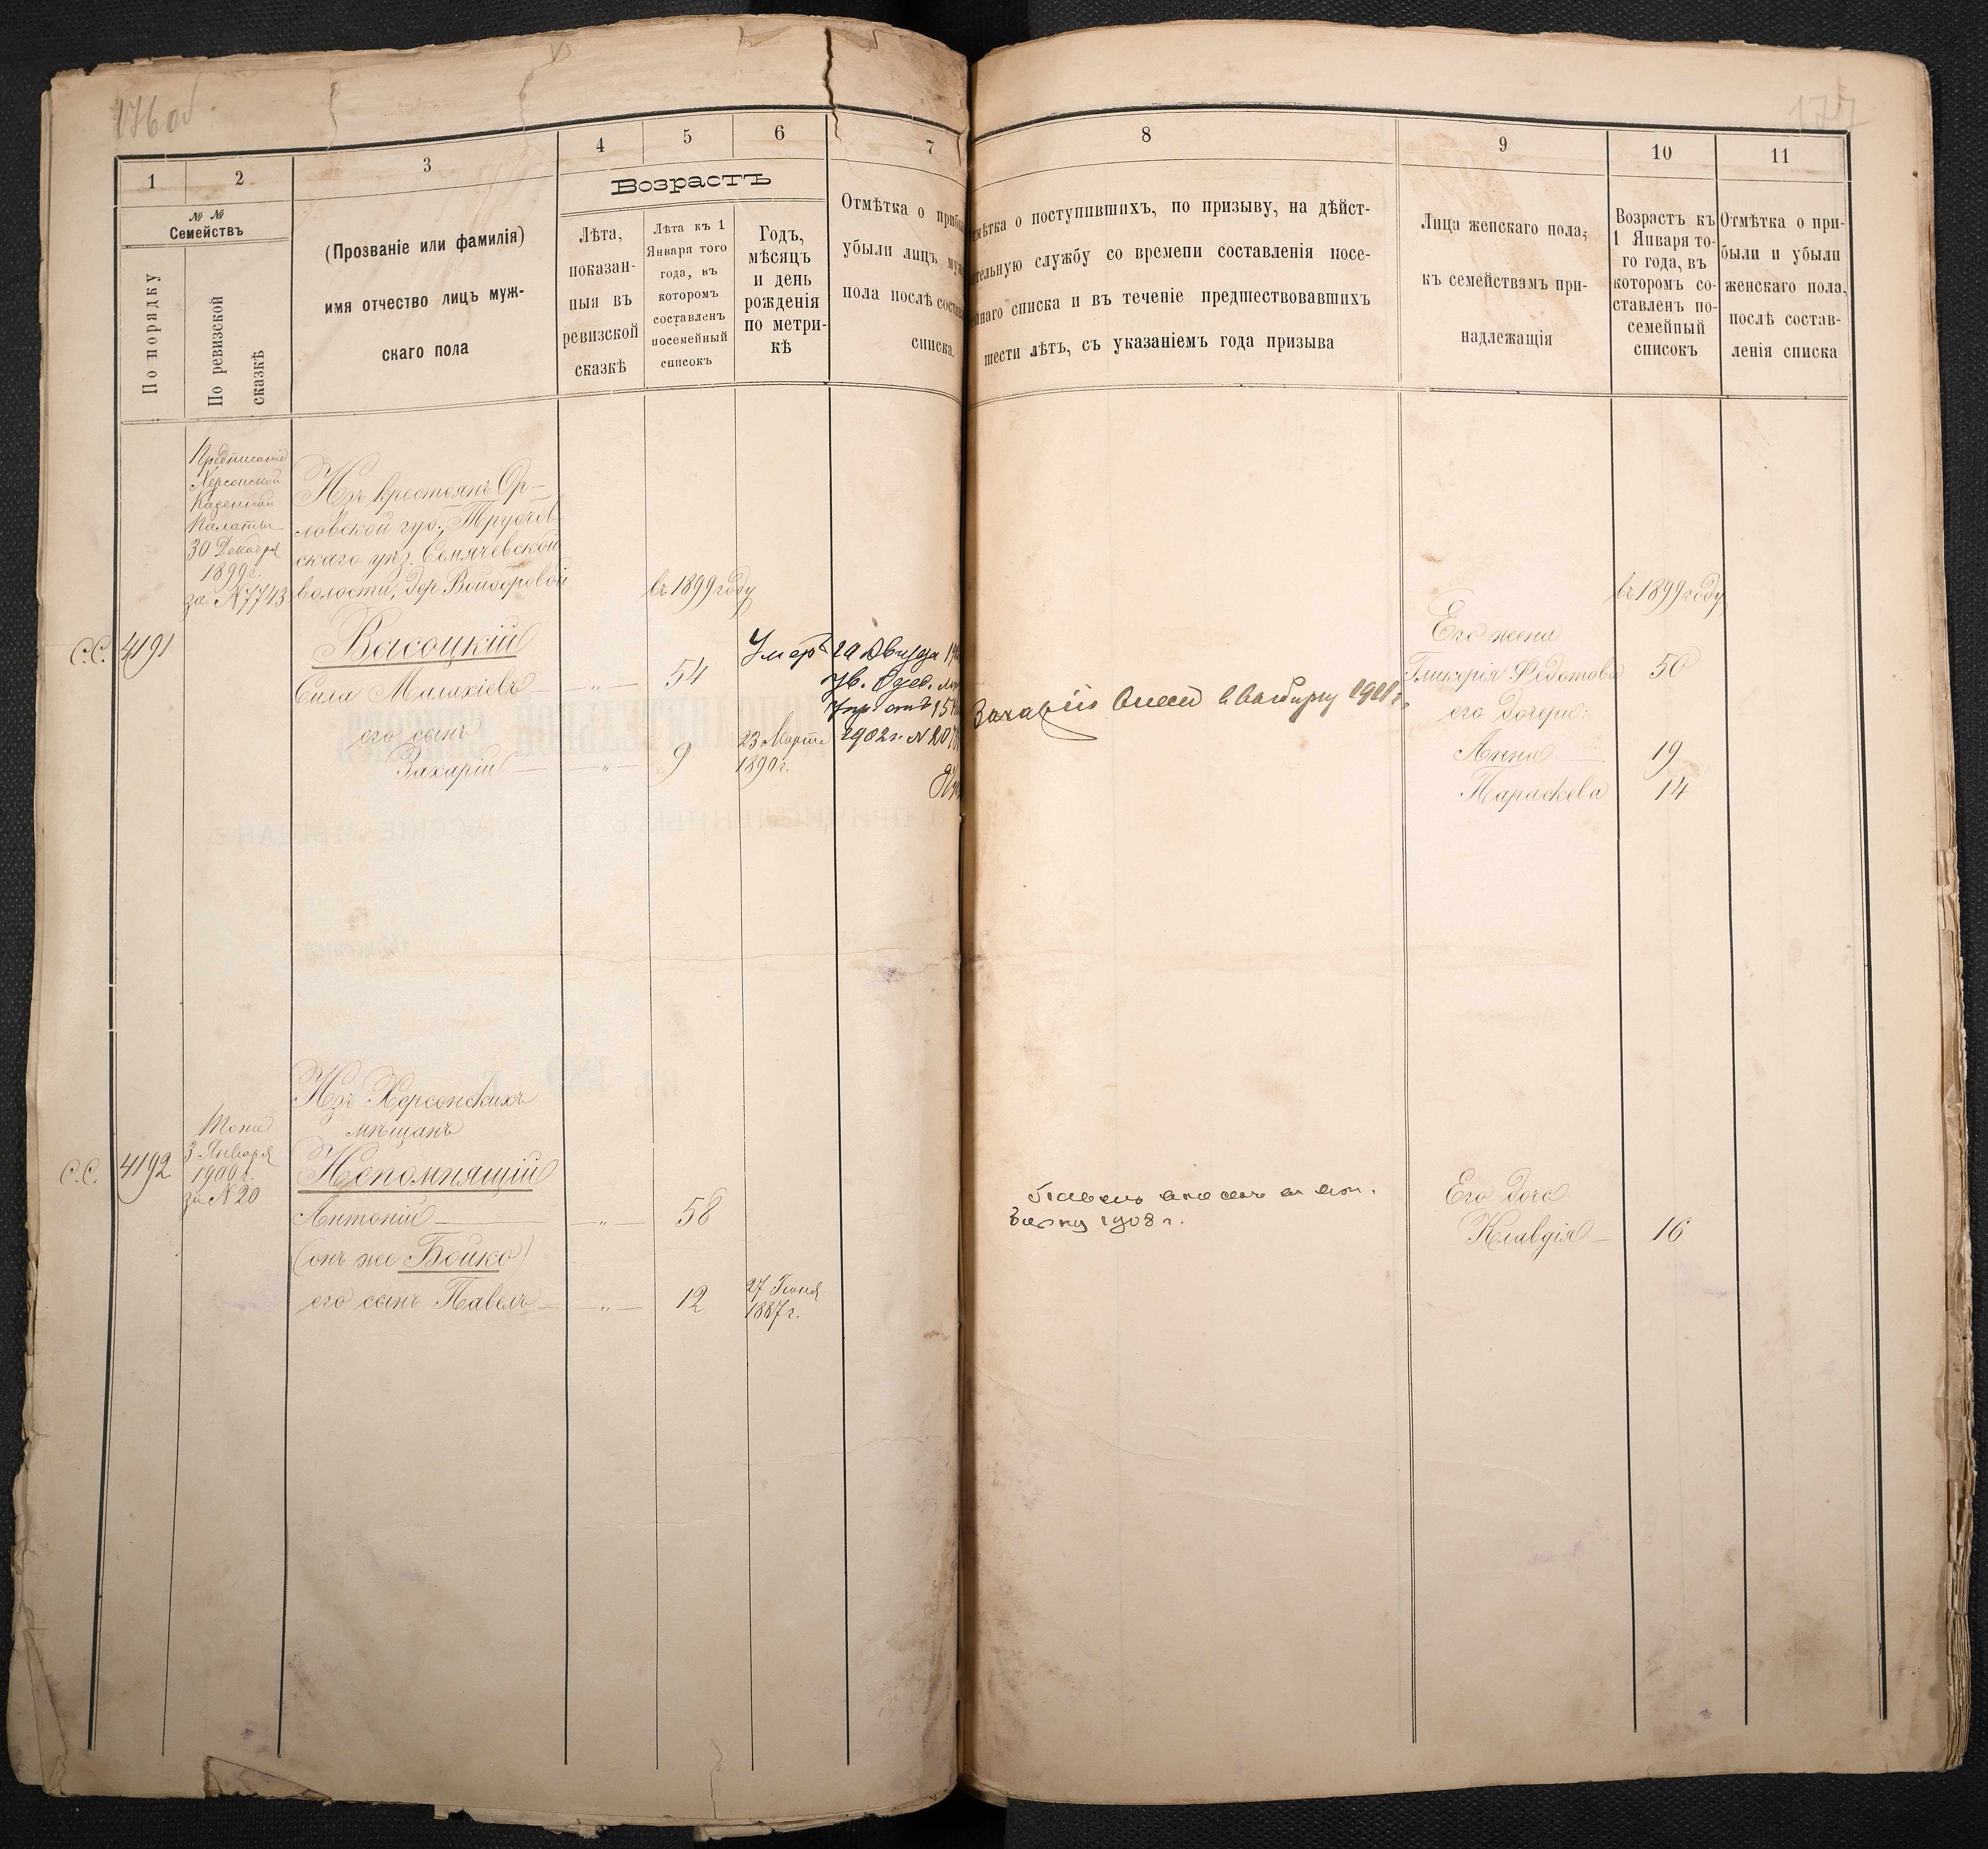 176об
177
1
2
3
4
5
6
7
8
9
10
11
№ №
Семействъ
По порядку
По ревизской
сказкѣ
(Прозваніе или фамилія)
имя отчество лицъ муж-
скаго пола
Возрастъ
Лѣта,
показан-
ныя въ
ревизской
сказкѣ
Лѣта къ 1
Января того
года, въ
которомъ
составленъ
посемейный
списокъ
Годъ,
мѣсяцъ
и день
рожденія
по метри-
кѣ
Отмѣтка о прибы
убыли лицъ муж
пола послѣ состав
списка.
мѣтка о поступившихъ, по призыву, на дѣйст-
ительную службу со времени составленія посе-
йнаго списка и въ теченіе предшествовавшихъ
шести лѣтъ, съ указаніемъ года призыва
Лица женскаго пола,
къ семействамъ при-
надлежащія
Возрастъ къ
1 Января то-
го года, въ
которомъ со-
ставленъ по-
семейный
списокъ
Отмѣтка о при-
были и убыли
женскаго пола,
послѣ состав-
ленія списка
Предписаніе
Херсонской
Казенной
Палаты
30 Декабря
1899 г.
за № 7743
Изъ крестьянъ Ор-
ловской губ., Трубчев-
скаго уѣз. Семячевской
волости, дер.
въ 1899 году
въ 1899 году
С.С. 4191
Высоцкій
Сила Малахіевъ — " — 54
его сынъ
Захарій — " — 9
23 Марта
1890 г.
Умеръ 20
1902 г. №
Захарій
Его жена
Гликерія Федотова 50
его дочери:
Анна — 19
Параскева 14
Изъ Херсонскихъ
мѣщанъ
Тоже
3 Января
1900 г.
за № 20
С.С. 4192
Непомнящій
Антоній — " — 58
(онъ же Бойко)
его сынъ Павелъ — " — 12
27 Іюня
1887 г.
Павелъ
1908 г.
Его дочь
Клавдія — 16